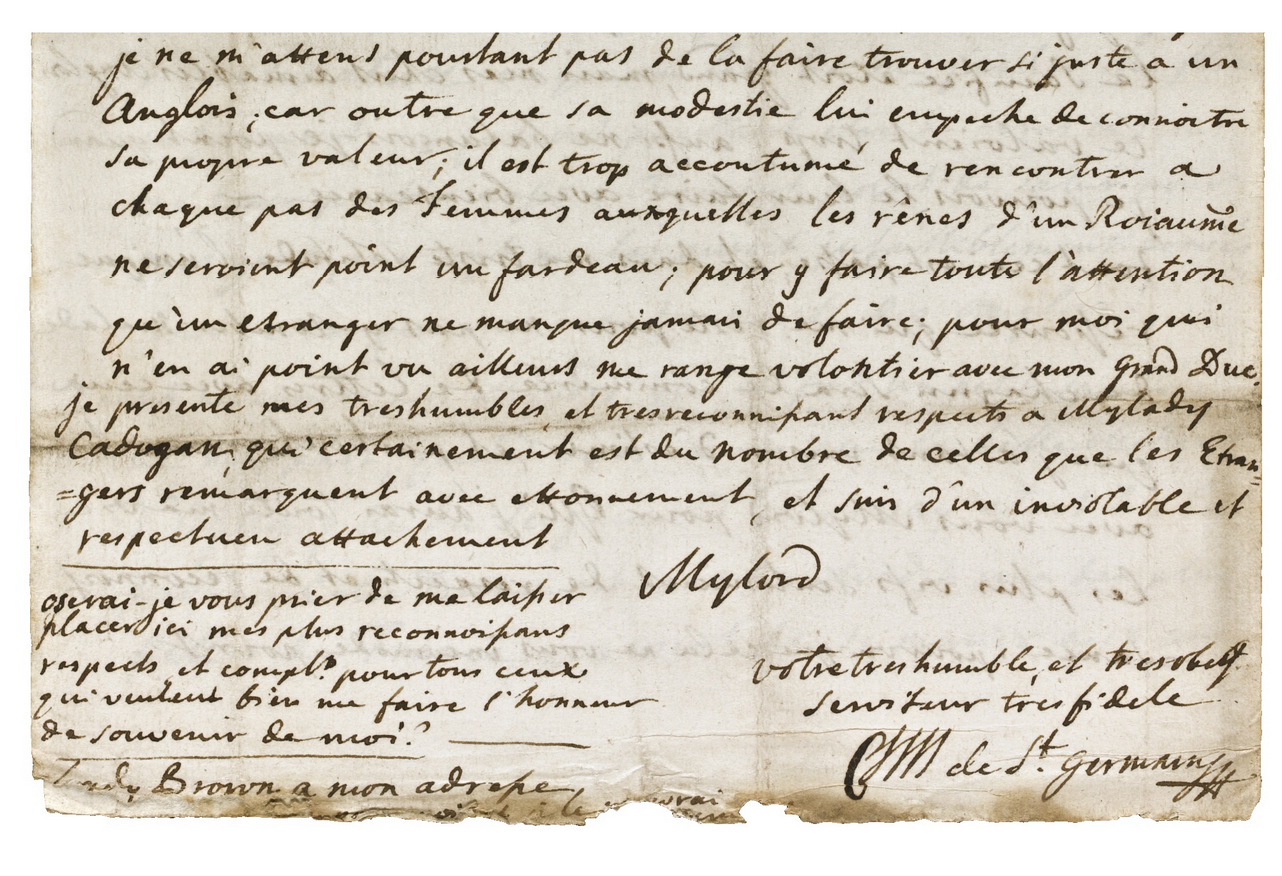 je ne m'attens pourtant pas de la faire trouver si juste a un
Anglois, car outre que sa modestie lui empeche de connoitre
sa propre valeur; il est trop accoutumé de rencontrer a
chaque pas des Femmes auxquelles les rênes d'un Roiaume
ne seroient point un fardeau; pour y faire toute l'attention
qu'un etranger ne manque jamais de faire; pour moi qui
n'en ai point vu ailleurs me range volontier avec mon grand Duc.
je presente mes treshumbles, et tresreconnissant respects a Mylady
Cadogan, qui certainement est du nombre de celles que les Etran=
=gers remarquent avec ettonnement, et suis d'un inviolable et
respectueu attachement
Mylord
oserai-je vous prier de me laisser
placer ici mes plus reconnoissans
respects, et complts pour tous ceux
qui veulent bien me faire l'honneur
de souvenir de moi?
votre treshumble, et tresobeist
serviteur tres fidele
de St. Germain
Lady Brown a mon adresse